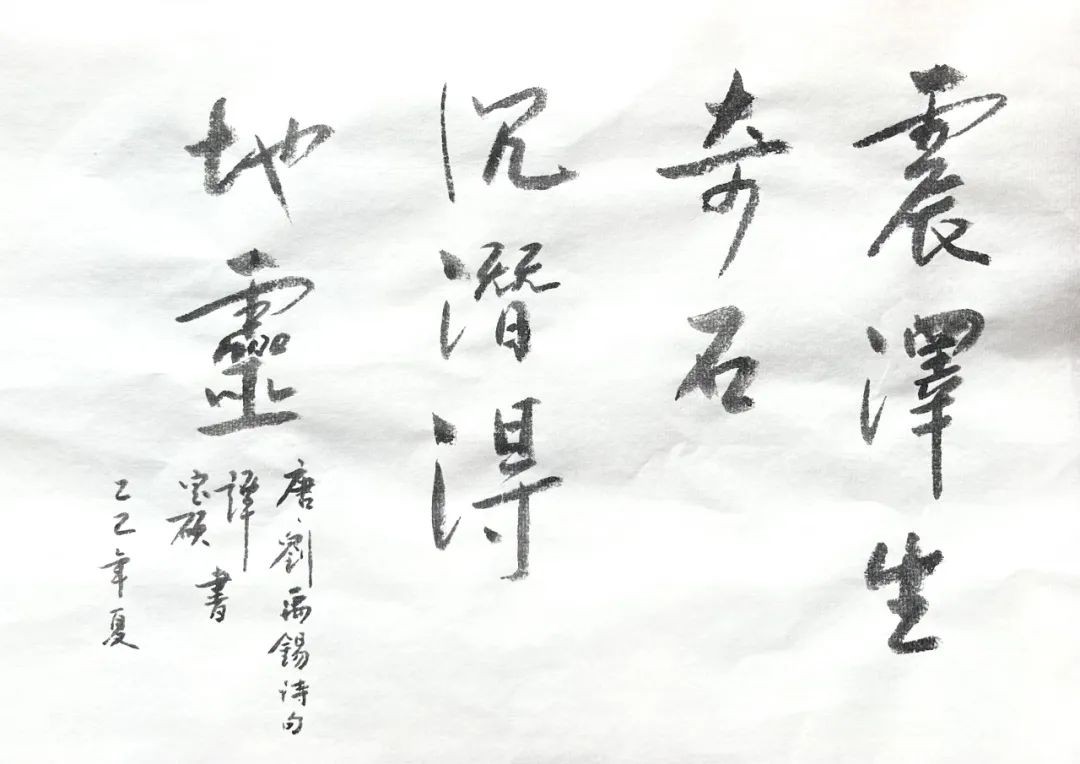 震澤生
奇石
沉潛得
地靈
唐、劉禹錫诗句
譚
宏碩
書
乙巳年夏